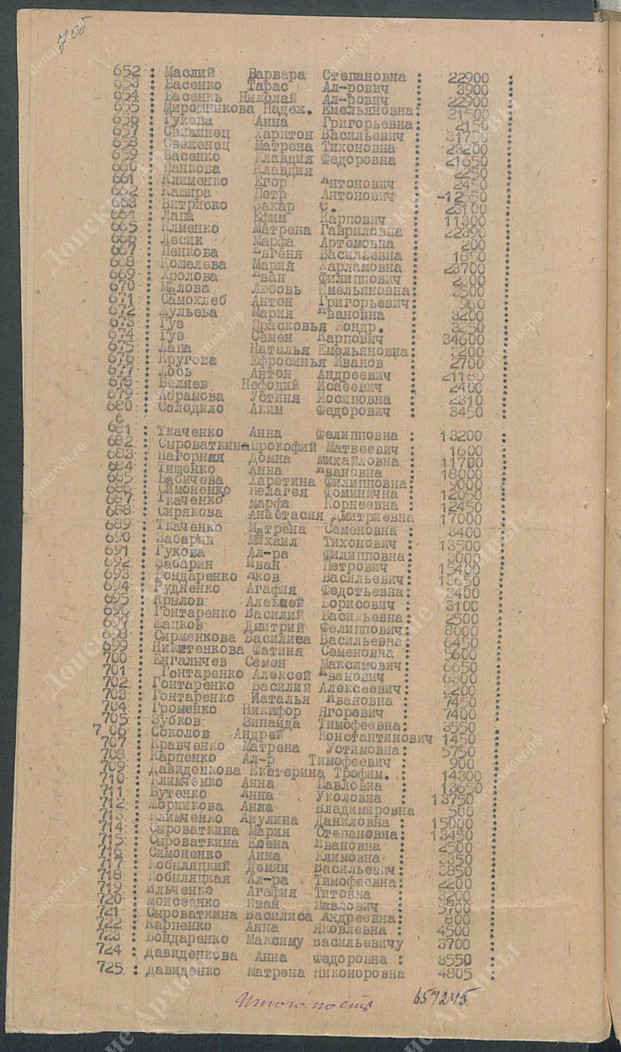 652 : Маслий Варвара Степановна : 22900
653 : Васенко Тарас Ал-рович : 3900
654 : Васенкь Николай Ал-рович : 22900
655 : Мирошникова Надеж. Емельяновна: 21500
656 : Гукова Анна Григорьевна:
657 : Свежинец Харитон Васильевич :
658 : Свеженец Матрена Тихоновна : 23200
659 : Васенко Клавдия Федоровна : 21650
660 : Панкова Клавдия :
661 : Клименко Егор Антонович :
662 : Кашира Петр Антонович :
663 : Витриско Захар С. :
664 : Лапа Ефим Карпович : 11300
665 : Клменко Матрена Гавриловна :
666 : Лесик Марфа Артемовна : 200
667 : Пенкова Евгеня Васильевна :
668 : Кошелева Мария Харламовна : 23700
669 : Фролова Иван Филиппович :
670 : Малова Любовь Емельяновна :
671 : Самохлеб Антон Григорьевич :
672 : Мария Ивановна : 3200
673 : Гуз Прасковья Кондр. : 3250
674 : Гуз Семен Карпович : 34600
675 : Лапа Наталья Емельяновна:
676 : Кругова Ефросинья Иванов : 2700
677 : Лось Антон Андреевич : 21180
678 : Беляев Нефодий Исаевич : 2400
679 : Абрамова Устиня Иосиповна : 2310
680 : Солодило Аким Федорович : 3450
6
681 : Ткаченко Анна Фелипповна : 13200
682 : Сыроваткина Прокофий Матвеевич : 1600
683 : Нагорная Домна Михайловна : 11700
684 : Тищенко Анна Ивановна : 18000
685 : Бабичева Харетина Филипповна:
686 : Симоненко Пелагея Фоминична : 12050
687 : Ткаченко Марфа Корнеевна : 12450
688 : Сирякова Анастасия Дмитриевна 17000
689 : Ткаченко Матрена Семеновна : 3400
690 : Забарин Михаил Тихонович : 13500
691 : Гукова Ал-ра Филипповна:
692 : Забарин Иван Петрович : 15400
693 : Бондаренко Яков Васильевич :
694 : Рудненко Агафия Федотьевна: 3400
695 : Крылов Алексей Борисович : 3100
696 : Гонтаренко Василий Васильевна: 2500
697 : Дмитрий Фелиппович: 8000
698 : Сирженкова Василиса Васильевна: 6450
699 : Никитенкова Фатиня Семеновна :
700 : Енгалычев Семен Максимович: 6650
701 : Гонтаренко Алексей Иванович : 6300
702 : Гонтаренко Василий Алексеевич: 3200
703 : Гонтаренко Наталья Ивановна : 7450
704 : Громенко Никифор Ягорович : 7400
705 : Зубков Зинаида Тимофеевна: 3550
706 : Соколов Андрей Константинович 1450
707 : Кравченко Матрена Устимовна: 5750
708 : Карпенко Ал-р Тимофеевич : 900
709 : Давиденкова Екатерина Трофим. : 14300
710 : Климченко Анна Павловна :
711 : Бутенко Анна Уколовна : 13750
712 : Анна Владимировна : 500
713 : Климченко Акулина Даниловна :
714 : Сыроваткина Мария Степановна: 13450
715 : Сыроваткина Елена Ивановна : 2500
716 : Симоненко Анна Климовна :
717 : Кобыляцкий Демян Васильевич : 3850
718 : Кобыляцкая Ал-ра Тимофеевна : 2200
719 : Ильченко Агафия Титовна :
720 : Моисеенко Иван Павлович :
721 : Сыроваткина Василиса Андреевна : 800
722 : Карпенко Анна Яковлевна : 4500
723 : Бондаренко Максиму Васильевичу 3700
724 : Давиденкова Анна Федоровна : 3550
725 : Давиденко Матрена Никоноровна 4805
Итого по стр 657245